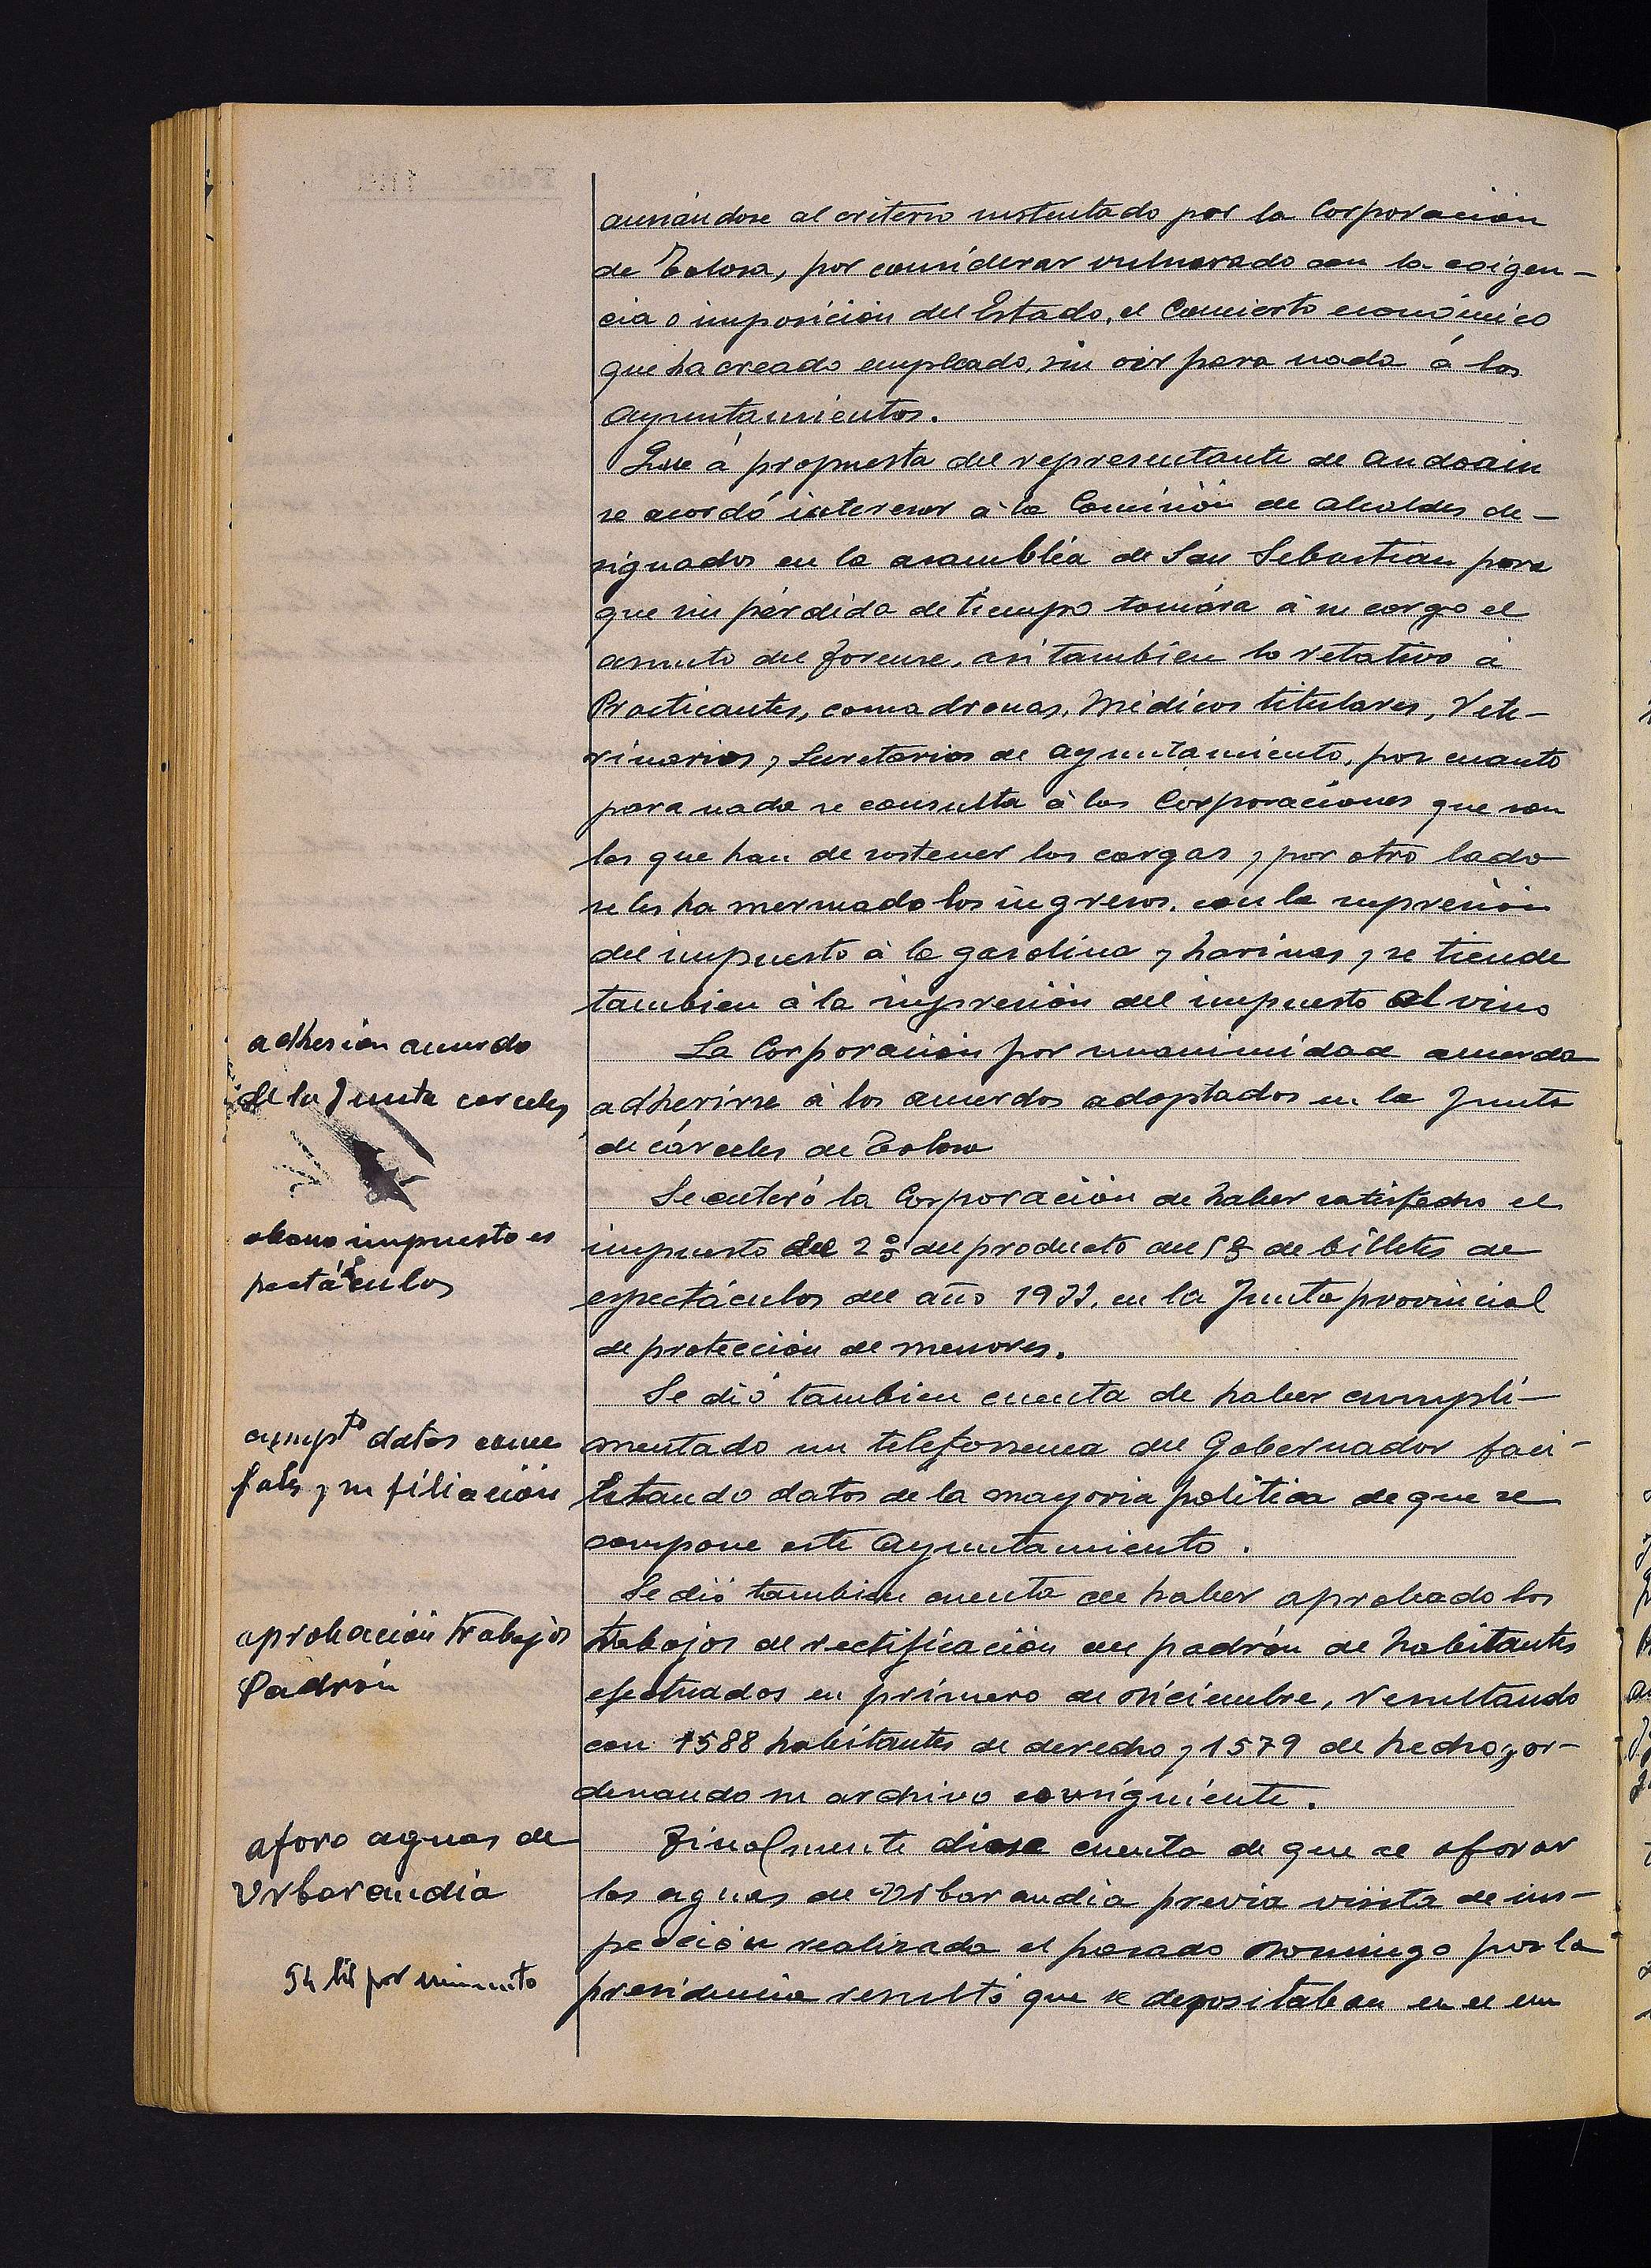 aunándose al criterio sustentado por la Corporación
de Tolosa, por considerar vulnerado con la exigen-
cia o imposición del Estado, el Concierto económico
que ha creado empleado, sin oir para nada á los
Ayuntamientos.
Que á propuesta del representante de Andoain
se acordó interesar á la Comisión de Alcaldes de-
signados en la asambléa de San Sebastian para
que sin pérdida de tiempo tomára á su cargo el
asunto del forense, asi tambien lo relativo á
Practicantes, comadronas, Médicos titulares, Vete-
rinarios y Secretarios de Ayuntamiento, por cuanto
para nada se consulta á las Corporaciones que son
las que han de sostener las cargas y por otro lado
se les ha mermado los ingresos, con la supresión
del impuesto á la gasolina y harinas y se tiende
tambien á la supresión del impuesto al vino
adhesión acuerdo
de la Junta carceles
La Corporación por unanimidad acuerda
adherirse á los acuerdos adoptados en la Junta
de cárceles de Tolosa
abono impuesto es
pectáculos
Se enteró la Corporación de haber satisfecho el
impuesto del 2% del producto del 5% de billetes de
espectáculos del año 1933, en la Junta provincial
de protección de menores.
cumptº datos conce
jales y su filiación
Se dió tambien cuenta de haber cumpli-
mentado un telefonema del Gobernador faci-
litando datos de la mayoria politica de que se
compone este Ayuntamiento.
aprobación trabajos
Padrón
Se dió tambien cuenta de haber aprobado los
trabajos de rectificación del padrón de habitantes
efectuados en primero de Diciembre, resultando
con 1588 habitantes de derecho y 1579 de hecho y or-
denando su archivo consiguiente.
aforo aguas de
Urbarandia
54 lts por minuto
Finalmente diose cuenta de que al aforar
las aguas de Urbarandia previa visita de ins-
pección realizada el pasado Domingo por la
presidencia resultó que se depositaban en el em